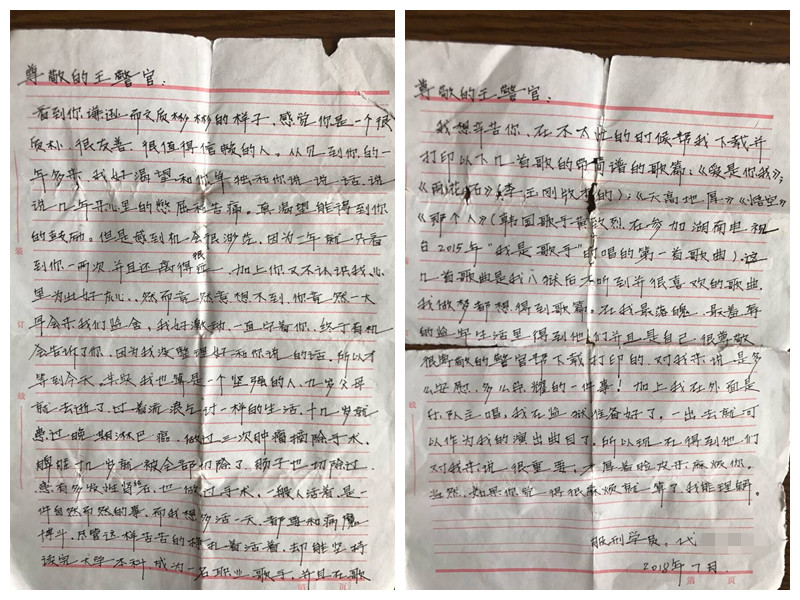 尊敬的王警官：
看到你谦逊而文质彬彬的样子，感觉你是一个很
质朴、很友善、很值得信赖的人。从见到你的一
年多来，我好渴望和你单独和你说说话，说
说几年来心里的憋屈和苦痛。真渴望能得到你
的鼓励。但是感到机会很渺茫，因为一年前只看
到你一两次，并且还离得很远，加上你又不认识我，心
里为此好灰心。然而竟然意想不到，你竟然一大
早会来我们监舍，我好激动，一直守着你，终于有机
会告诉了你。因为我没整理好和你说的话，所以才
等到今天。其实我也算是一个坚强的人，九岁父母
前去逝了，过着流浪乞讨一样的生活，十几岁就
患过晚期淋巴癌，做过三次肿瘤摘除手术，
脾脏十几岁前被全部切除了，肠子也切除过
患有多发性肾结石也做过手术。一般人活着是一
件自然而然的事，而我想多活一天，都要和病魔
博斗，尽管这样苦苦的挣扎着活着，却能坚持
读完大学本科，成为一名职业歌手，并且在歌
第 页
装
订
线
尊敬的王警官：
我想幸告你，在不太忙的的时候帮我下载并
打印以下几首歌的带简谱的歌篇：《爱是你我》；
《雨花石》（李玉刚改李的）；《天高地厚》《悟空》
《那个人》（韩国歌手黄致烈在参加湖南电视
台2015年“我是歌手”时唱的第一首歌曲）；这
几首歌曲是我入狱后才听到并很喜欢的歌曲，
我做梦都想得到歌篇。在我最落魄、最羞辱
的监牢生活里得到他们并且是自己很尊敬
很尊敬的警官帮下载打印的，对我来说是多
么安慰，多么荣耀的一件事！加上我在外面是
乐队主唱，我在监狱准备好了，一出去就可
以作为我的演出曲目了，所以现在得到他们
对我来说很重要，才厚着脸皮来麻烦你。
当然，如果你觉得很麻烦就算了，我能理解。
服刑学员：代
2018年7月.
第 页